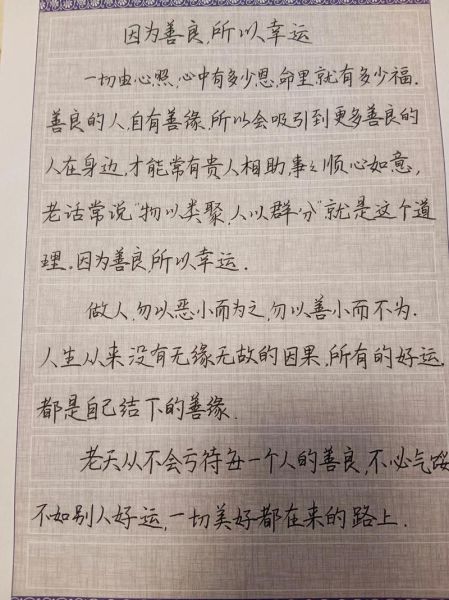 因为善良,所以幸运
一切由心照,心中有多少恩,命里就有多少福.
善良的人,自有善缘,所以会吸引到更多善良的
人在身边,才能常有贵人相助,事之顺心如意,
老话常说"物以类聚,人以群分"就是这个道
理.因为善良,所以幸运.
做人,勿以恶小而为之,勿以善小而不为.
人生从来没有无缘无故的因果,所有的好运,
都是自己结下的善缘.
老天从不会亏待每一个人的善良,不必气馁
不如别人好运,一切美好都在来的路上.